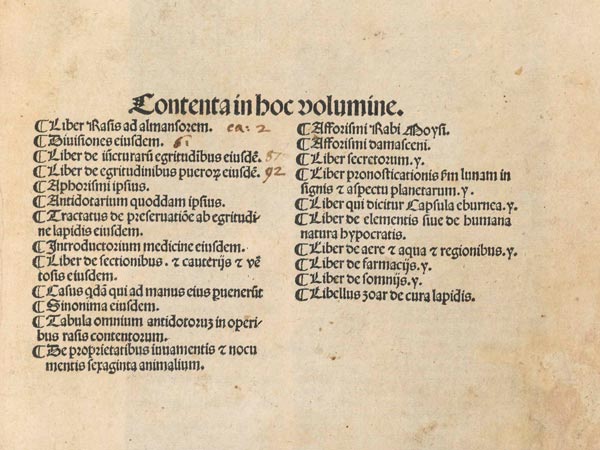 Contenta in hoc volumine.
¶ Liber Rasis ad almansorem. ca: 2
¶ Divisiones eiusdem. 61
¶ Liber de iũcturarũ egritudĩbus eiusdẽ. 87
¶ Liber de egritudinibus pueroꝝ eiusdẽ. 92
¶ Aphorismi ipsius.
¶ Antidotarium quoddam ipsius.
¶ Tractatus de preservatiõe ab egritudi⸗
ne lapidis eiusdem.
¶ Introductorium medicine eiusdem.
¶ Liber de sectionibus. ⁊ cauterijs ⁊ vẽ
tosis eiusdem.
¶ Casus qdã qui ad manus eius ꝑuenerũt
¶ Sinonima eiusdem.
¶ Tabula omnium antidotoruꝫ in operi⸗
bus rasis contentorum.
¶ De proprietatibus iuuamentis ⁊ nocu
mentis sexaginta animalium.
¶ Afforismi Rabi Moysi.
¶ Afforismi damasceni.
¶ Liber secretorum. y.
¶ Liber pronosticationis ẜm lunam in
signis ⁊ aspectu planetarum. y.
¶ Liber qui dicitur Capsula eburnea. y.
¶ Liber de elementis siue de humana
natura hypocratis.
¶ Liber de aere ⁊ aqua ⁊ regionibus. y.
¶ Liber de farmacijs. y.
¶ Liber de somnijs. y.
¶ Libellus zoar de cura lapidis.